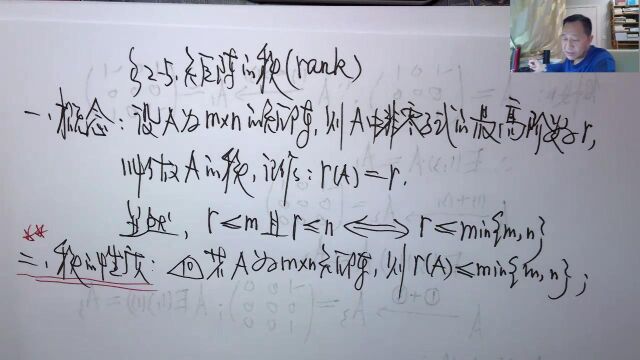 §2-5. 矩阵的秩(rank)
一、概念：设A为m×n的矩阵，则A中非零子式的最高阶数为r，
叫做A的秩，记作：r(A)=r.
显然，r≤m且r≤n ⟺ r≤min{m,n}
**
二、秩的性质：① 若A为m×n矩阵，则r(A)≤min{m,n}；